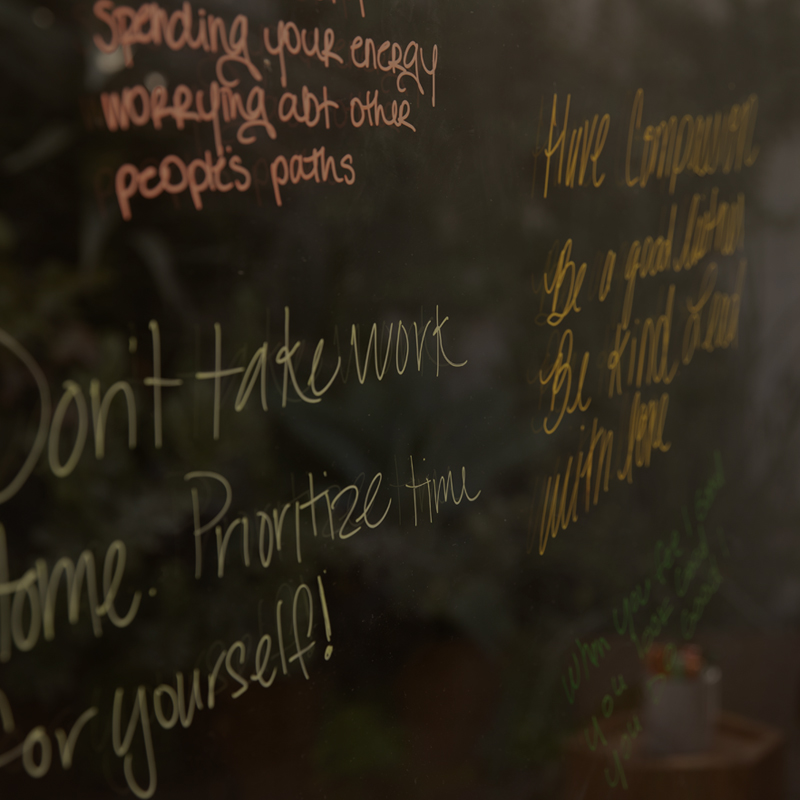 Spending your energy
worrying abt other
people's paths
Don't take work
home. Prioritize time
for yourself!
Have Compassion
Be a good listener
Be Kind Lead
with love
When you feel good
you look good
you